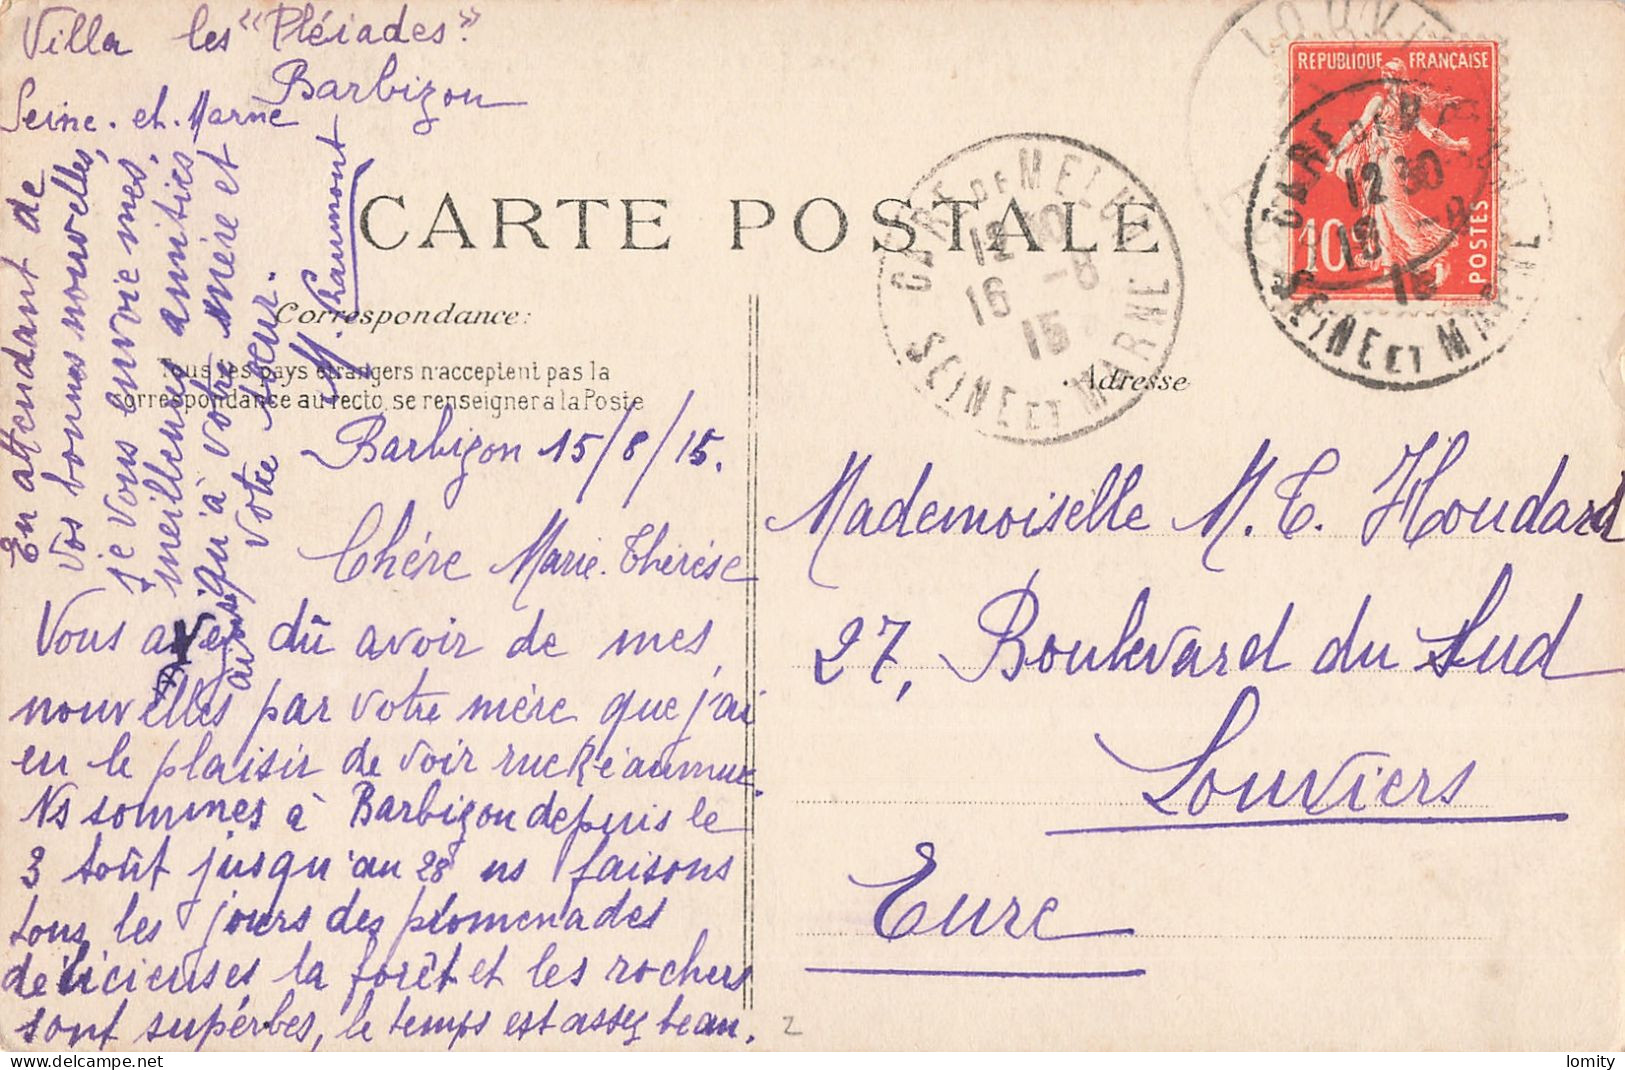 Villa les "Pléiades".
Barbizon
Seine. et. Marne
CARTE POSTALE
Correspondance:
Tous les pays étrangers n'acceptent pas la
correspondance au recto, se renseigner à la Poste
Barbizon 15/8/15.
Chére Marie. Thérése
Vous avez dû avoir de mes
nouvelles par votre mére que j'ai
eu le plaisir de voir rue
Ns sommes à Barbizon depuis le
3 toût jusqu'au 28 ns faisons
tous les jours des promenades
délicieuses la forêt et les rochers
sont supérbes, le temps est assez beau.
En attendant de
vos bonnes nouvelles,
je vous envoie mes
meilleures amitiés
ainsi qu'à votre mère et
votre sœur.
M. Chaumont
Adresse
Mademoiselle M. T. Houdard
27, Boulevard du Sud
Louviers
Eure
GARE DE MELUN
12 30
16 -8
15
SEINE ET MARNE
REPUBLIQUE FRANÇAISE
10c
POSTES
GARE DE M
12 30
-8
15
SEINE ET MARNE
LOUVI
2
lomity